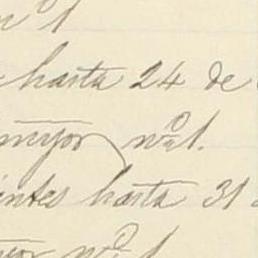 nº 1
hasta 24 de
mayor nº 1.
entes hasta 31
nº 1